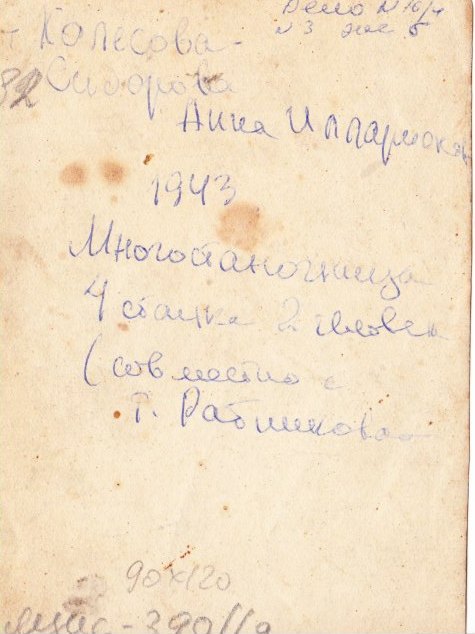 Дело N 16/4
N 3 экс 5
- Колесова -
32 Сидорова
Анна Илларионов
1943
Многостаночница
4 станка 2 человек
(совместно с
т. Работниковой
90х120